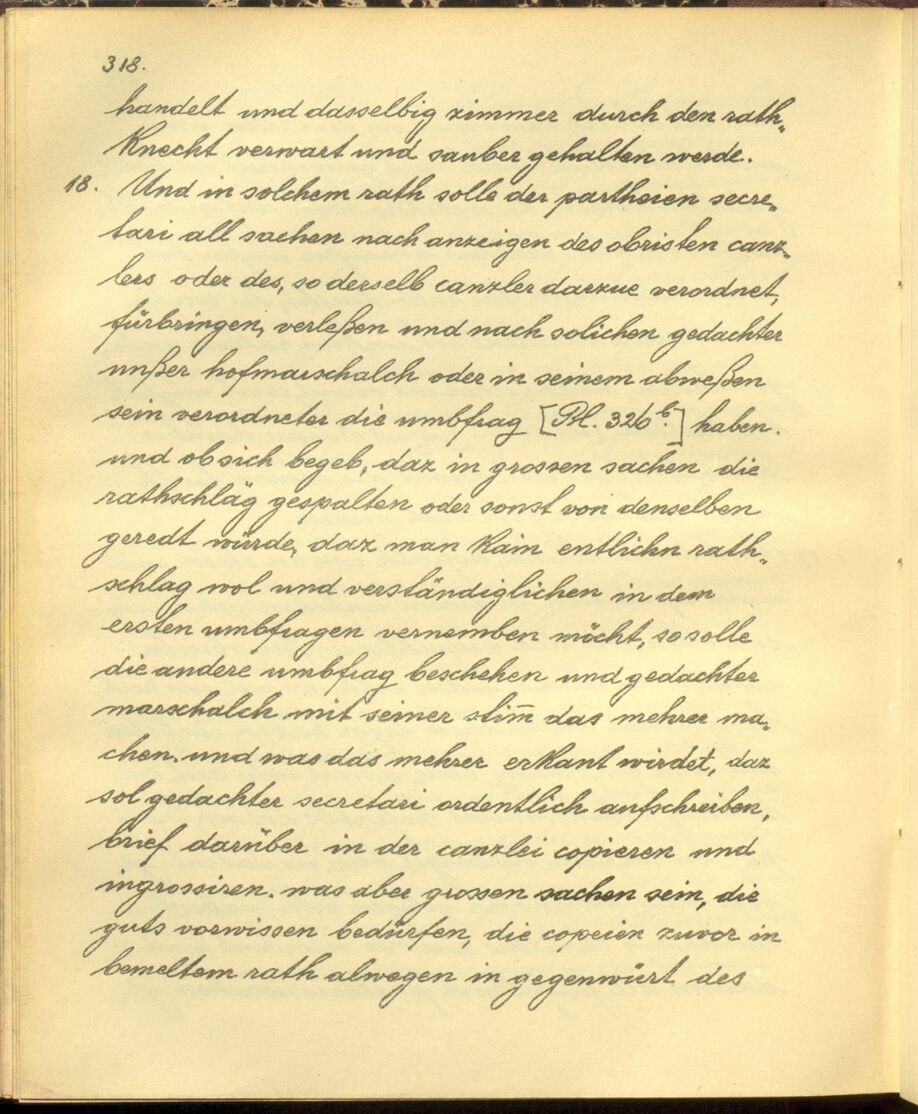 318.
handelt und dasselbig zimmer durch den rath„
knecht verwart und sauber gehalten werde.
18. Und in solchem rath solle der partheien secre„
tari all sachen nach anzeigen des obristen canz„
lers oder des, so derselb canzler darzue verordnet,
fürbringen, verleßen und nach solichen gedachter
unßer hofmarschalch oder in seinem abweßen
sein verordneter die umbfrag [Bl. 326b.] haben.
und ob sich begeb, daz in grossen sachen die
rathschläg gespalten oder sonst von denselben
geredt würde, daz man kain entlichn rath„
schlag wol und verständiglichen in dem
ersten umbfragen vernemben möcht, so solle
die andere umbfrag beschehen und gedachter
marschalch mit seiner stim̄ das mehrer ma„
chen. und was das mehrer erkant wirdet, daz
sol gedachter secretari ordentlich aufschreiben,
brief darüber in der canzlei copieren und
ingrossiren. was aber grossen sachen sein, die
guts vorwissen bedürfen, die copeien zuvor in
bemeltem rath alwegen in gegenwürt des